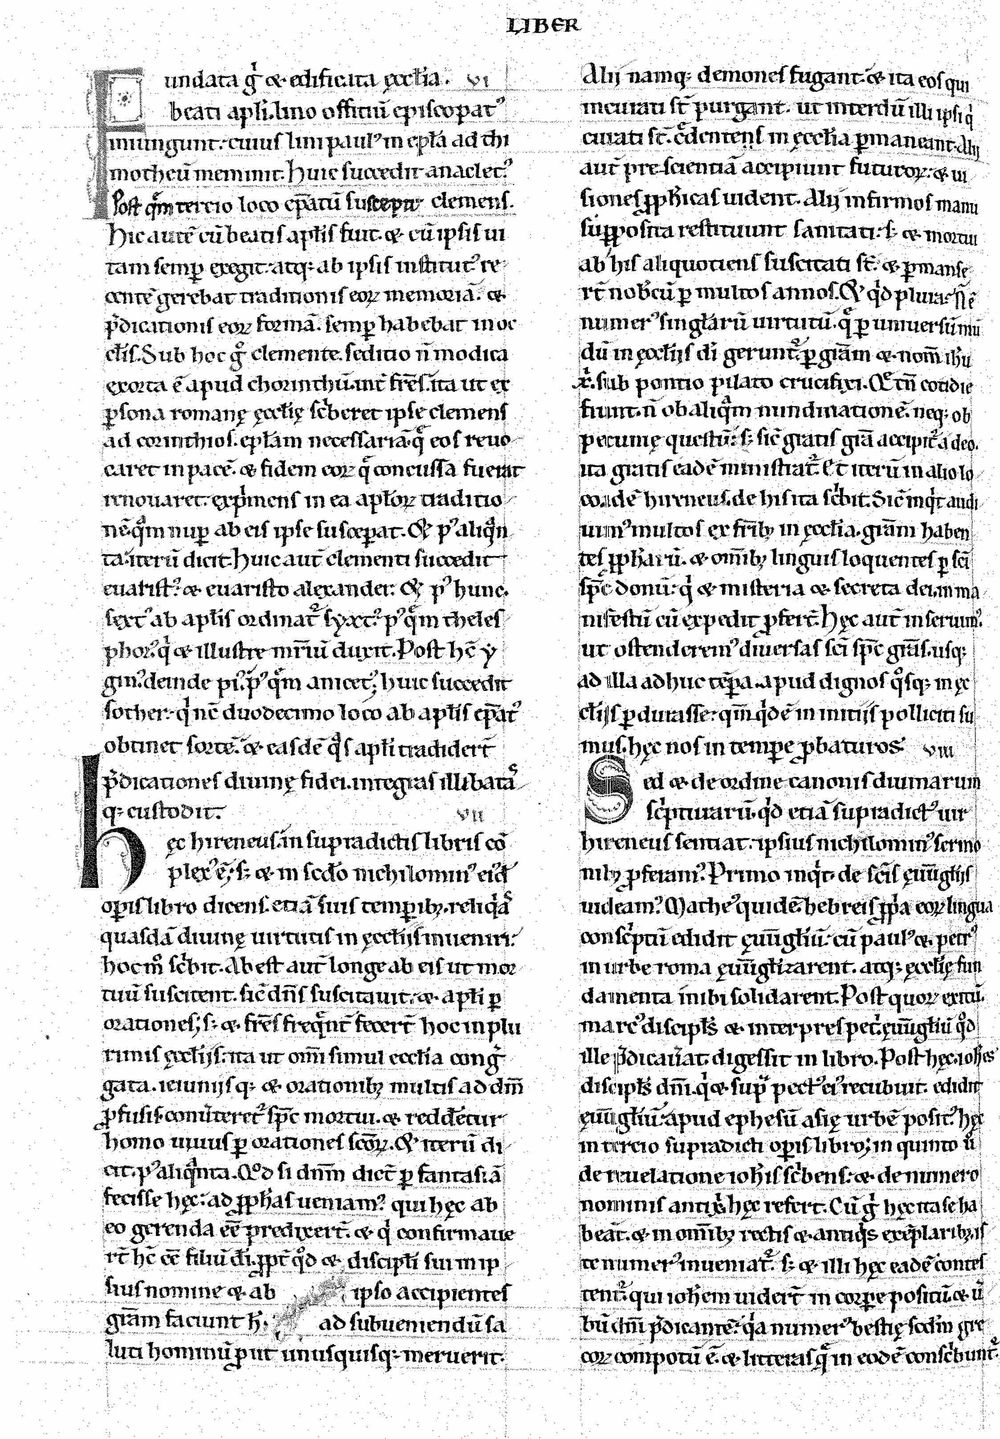 LIBER
undata g̃ & edificata ęcclia. vi
beati apli. lino offitiū episcopatꝰ
iniungunt. cuius lini paulꝰ in epła ad thi
motheū meminit. Huic succedit anacletꝰ
Post q̄m tercio loco ep̄atū suscepit clemens.
Hic autē cū beatis apłis fuit. & cū ipsis ui
tam semꝑ exegit. atq; ab ipsis institutꝰ re
centē gerebat traditionis eoꝝ memoriā. &
p̄dicationis eoꝝ formā. semꝑ habebat in oc
clis. Sub hoc g̃ clemente. seditio n̄ modica
exorta ē apud chorinthū. int̄ fr̄es. ita ut ex
ꝑsona romanę ęcclię sc̄beret ipse clemens
ad corinthios. epłam necessariā. q̄ eos reuo
caret in pacē. & fidem eoꝝ q̄ concussa fuerat
renouaret. exp̄imens in ea apłoꝝ traditio
nē. q̄m nuꝑ ab eis ipse susceꝑat. Et pꝰ aliq̄n
ta. iterū dicit. Huic aut̄ clementi succedit
euaristꝰ. & euaristo alexander. Et pꝰ hunc.
sextꝰ ab apłis ordinat̄ syxtꝰ. pꝰ q̄m theles
phorꝰ. q̄ & illustre mr̄iū duxit. Post hc̄ y
ginꝰ. deinde piꝰ. pꝰ q̄m anicetꝰ. huic succedit
sother. q̄ nc̄ duodecimo loco ab apłis ep̄atꝰ
obtinet sortē. & easdē q̄s apłi tradider̄t
p̄dicationes diuinę fidei. integras illibatas
q; custodit. vii
ęc hireneus. in supradictis libris cō
plexꝰ ē. s; & in sc̄do nichilominꝰ eiꝰdē
oꝑis libro dicens. etiā suis temꝑib; reliq̄as
quasdā diuinę uirtutis in ęcclijs inueniri.
hoc m̄ sc̄bit. Abest aut̄ longe ab eis ut mor
tuū suscitent. sic̄ dn̄s suscitauit. & apłi ꝑ
orationes; s; & fr̄es freq̄nt̄ fecer̄t hoc in plu
rimis ęcclijs. ita ut om̄i simul ecclia cong̃
gata. ieiunijs q; & orationib; multis ad dm̄
ꝓfusis. conūteret̄ sp̄c mortui. & redderetur
homo uiuus ꝑ orationes sc̄oꝝ. Et iterū di
cit. pꝰ aliq̄nta. Qd̄ si dn̄m dic̄t ꝑ fantasiā
fecisse hęc. ad ꝓph̄as ueniamꝰ. qui hęc ab
eo gerenda ēē predixer̄t. & q̄ confirmaue
r̄t hc̄ ēē filiū dī. ꝓpt̄ qd̄ & discipłi sui in ip
sius nomine & ab ipso accipientes
gr̄am faciunt h̄. ad subueniendū sa
luti hominū ꝓut unusquisq; meruerit.
Alij namq; demones fugant. & ita eos qui
incurati st̄ purgant. ut interdū illi ipsi q̄
curati st̄. c̄dentes in ęcclia ꝑmaneant. Alij
aut̄ prescientiā accipiunt futuroꝝ. & ui
siones ꝓph̄icas uident. Alij infirmos manu
supposita restituunt sanitati. s; & mortui
ab his aliquotiens suscitati st̄. & ꝑmanse
r̄t nob̄cū ꝑ multos annos. Et qd̄ plura. n̄ ē
numerꝰ singłarū uirtutū. q̄ ꝑ uniuersū mū
dū in ęcclijs dī gerunt̄. ꝑ gr̄am & nom̄ ih̄u
xp̄i. sub pontio pilato crucifixi. Et tn̄ cotidie
fiunt. n̄ ob aliq̄m nundinationē. neq; ob
pecunię questū. s; sic̄ gratis gr̄a accipit̄ a deo.
ita gratis eadē ministrat̄. Et iterū in alio lo
co. idē hireneus. de his ita sc̄bit. Sic̄ inq̄t audi
uimꝰ multos ex fr̄ib; in ęcclia. gr̄am haben
tes ꝓph̄iarū. & om̄ib; linguis loquentes ꝑ sc̄i
sp̄c donū. q̄ & misteria & secreta dei. in ma
nifestū cū expedit ꝓfert̄. Hęc aut̄ inseruimꝰ.
ut ostenderemꝰ diuersas sc̄i sp̄c gr̄as. usq;
ad illa adhuc tēꝑa. apud dignos q̄sq; in ęc
clijs ꝑdurasse. qm̄ qd̄ē in initijs polliciti su
mus. hęc nos in tempe ꝓbaturos. viii
Sed & de ordine canonis diuinarum
sc̄pturarū. qd̄ etiā supradictꝰ uir
hireneus sentiat. ipsius nichilominꝰ sermo
nib; ꝓferamꝰ. Primo inq̄t. de sc̄is ęuu̅glijs
uideamꝰ. Matheꝰ quidē. hebreis ꝓpria eoꝝ lingua
consc̄ptū edidit ęuu̅gliū. cū paulꝰ & petrꝰ
in urbe roma ęuu̅glizarent. atq; ęcclię fun
damenta inibi solidarent. Post quoꝝ exitū.
marcꝰ discipłs & interpres petri. ęuu̅gliū qd̄
ille p̄dicauerat. digessit in libro. Post hęc. ioh̄es
discipłs dn̄i. q̄ & suꝑ pectꝰ eiꝰ recubuit. edidit
ęuu̅gliū. apud ephesū asię urbē positꝰ. hęc
in tercio supradicti oꝑis libro; in quinto ū
de reuelatione ioh̄is sc̄bens. & de numero
nominis antixp̄i. hęc refert. Cū g̃ hęc ita se ha
beāt. & in om̄ib; rectis & antiq̄s exēplarib; is
te numerꝰ inueniat̄. s; & illi hęc eadē contes
tent̄. qui ioh̄em uider̄t in corꝑe positū. & ū
bū dn̄i p̄dicantē. q̄a numerꝰ bestię sc̄dm gre
coꝝ compotū ē. & litteras q̄ in eodē consc̄bunt̄.